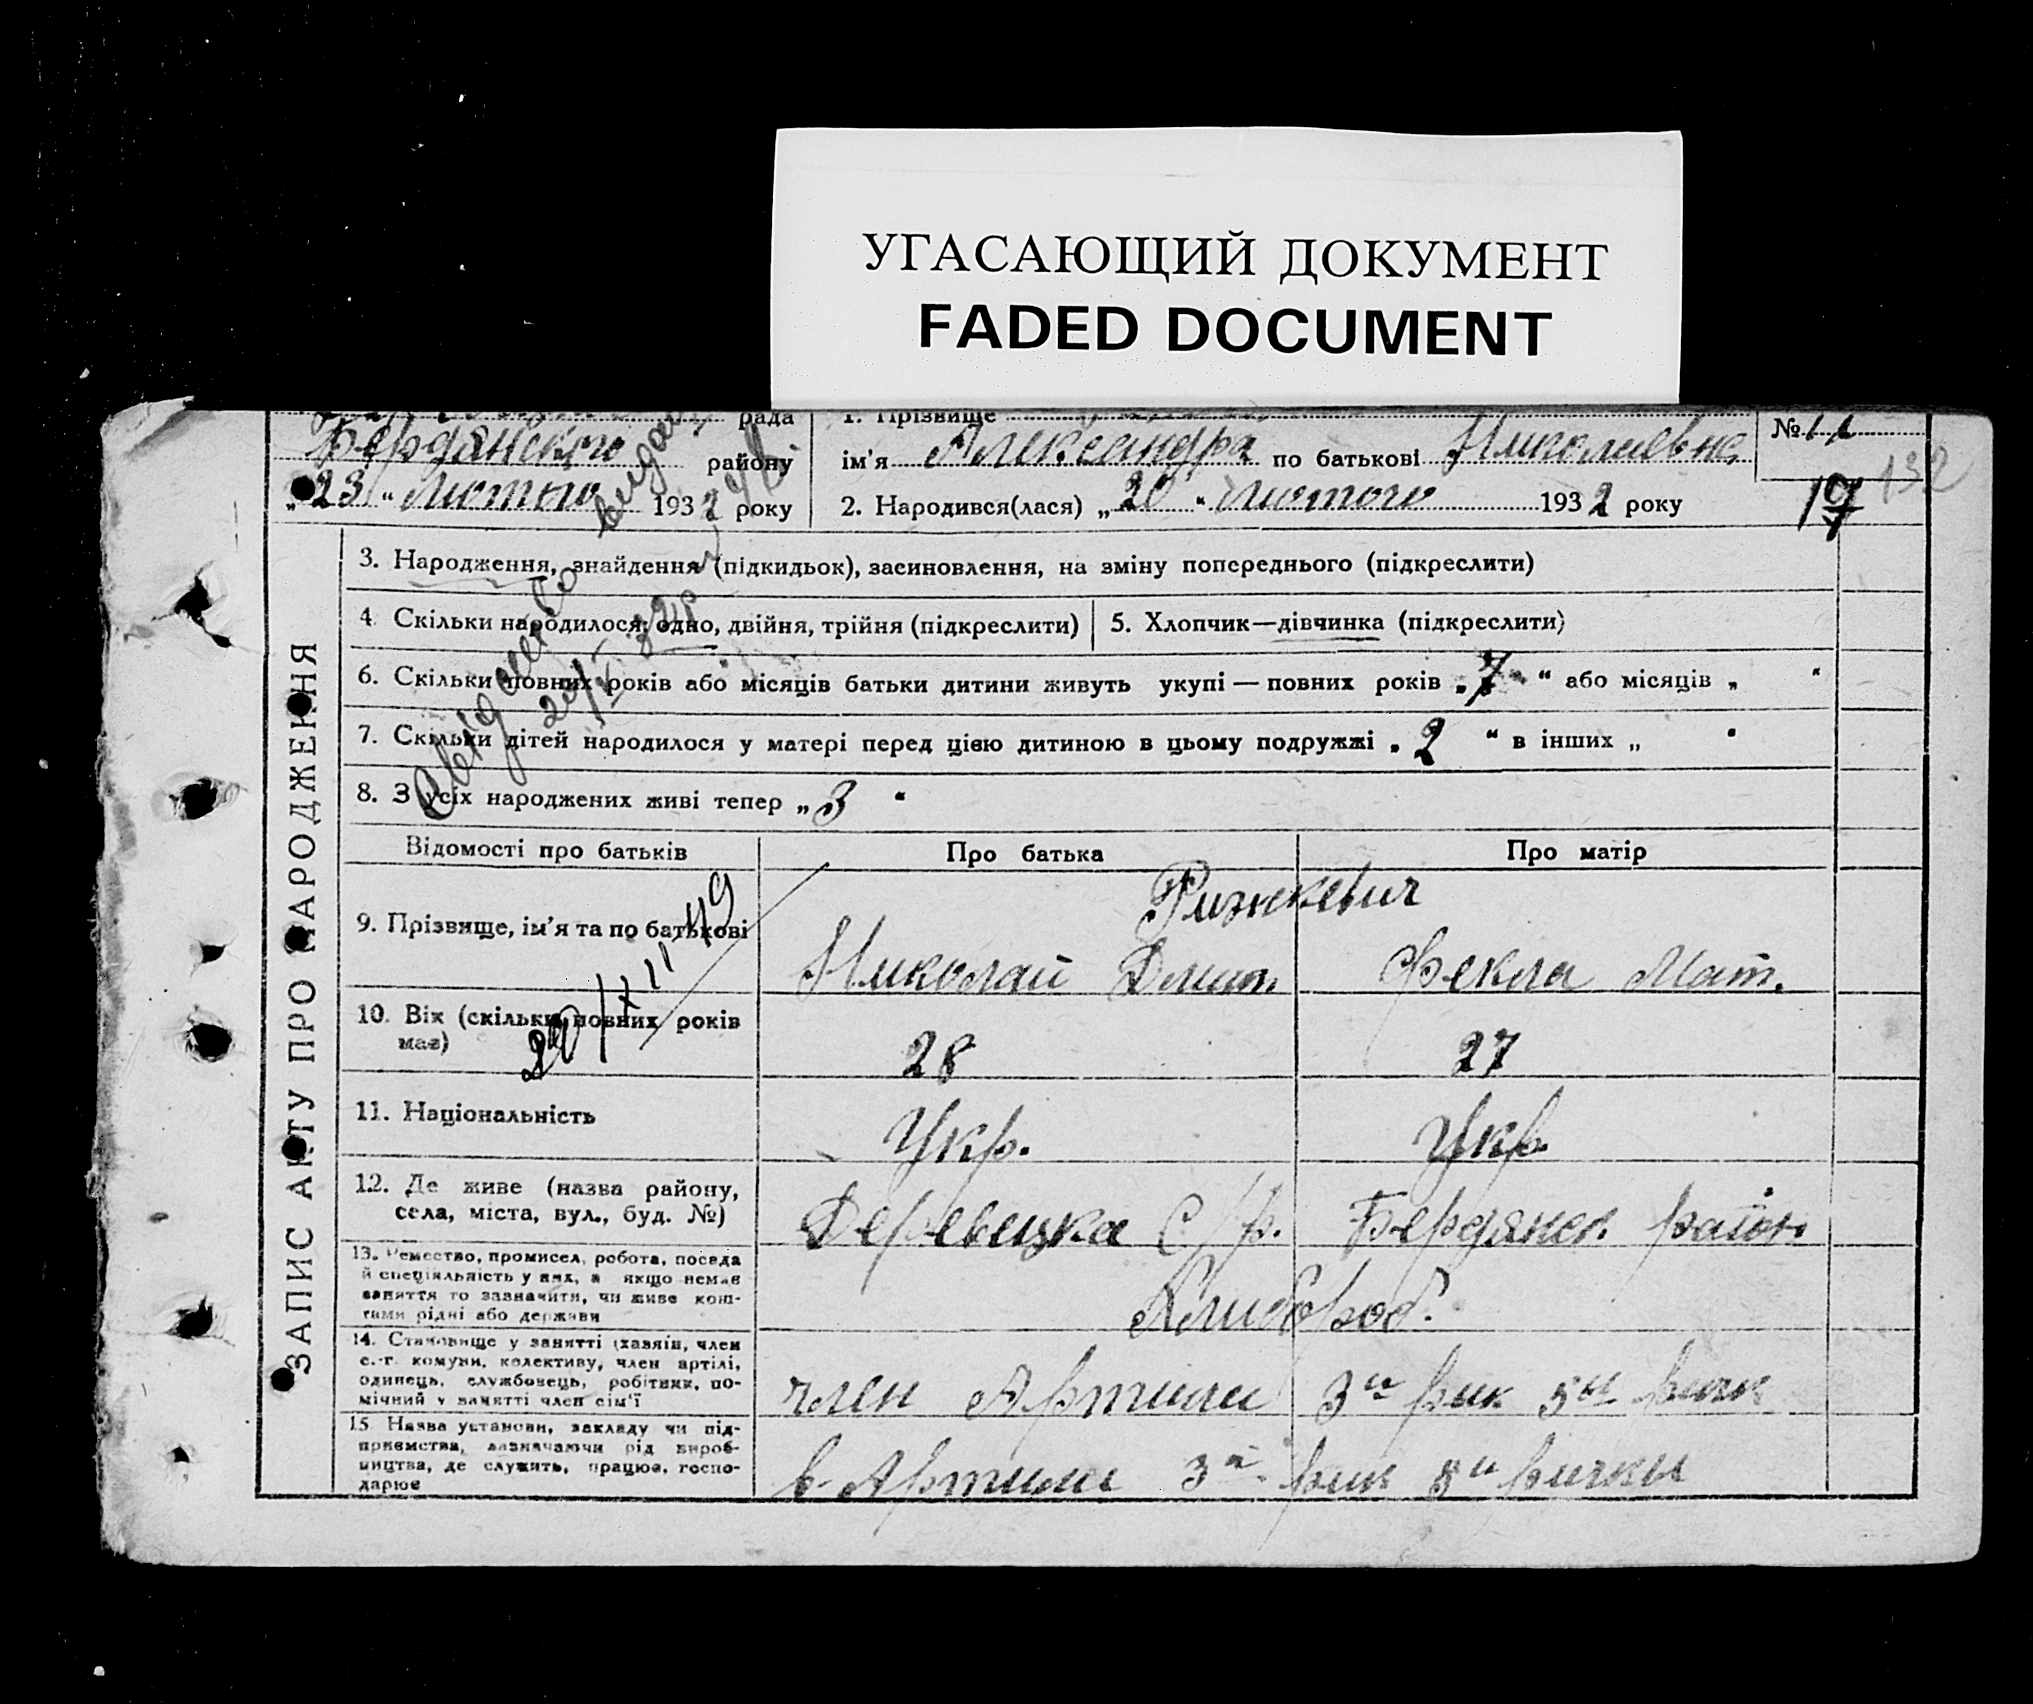 УГАСАЮЩИЙ ДОКУМЕНТ
FADED DOCUMENT
рада
Бердянского району
„23“ Лютого 1932 року
1. Прізвище
ім'я Александра по батькові Николаевна
2. Народився(лася) „20“ Лютого 1932 року
№ 11
132
17
ЗАПИС АКТУ ПРО НАРОДЖЕННЯ
3. Народження, знайдення (підкидьок), засиновлення, на зміну попереднього (підкреслити)
4. Скільки народилося: одно, двійня, трійня (підкреслити)
5. Хлопчик—дівчинка (підкреслити)
6. Скільки повних років або місяців батьки дитини живуть укупі — повних років „7“ або місяців „ “
7. Скільки дітей народилося у матері перед цією дитиною в цьому подружжі „2“ в інших „ “
8. З усіх народжених живі тепер „3“
Свідоцтво видано
20/XII-49
Відомості про батьків
Про батька
Про матір
9. Прізвище, ім'я та по батькові
Рижкевич
Николай Дмит.
Фекла Мат.
10. Вік (скільки повних років
має)
28
27
11. Національність
Укр.
Укр.
12. Де живе (назва району,
села, міста, вул., буд. №)
Деревецка С/р.
Бердянск. район
13. Ремество, промисел, робота, посада
й спеціяльність у них, а якщо немає
заняття то зазначити, чи живе кош-
тами рідні або держави
Хлибороб.
14. Становище у занятті (хазяїн, член
с.-г. комуни, колективу, член артілі,
одинець, службовець, робітник, по-
мічний у занятті член сім'ї
член Артили 3й рик 5й
15. Назва установи, закладу чи під-
приємства, зазначаючи рід вироб-
ництва, де служить, працює, госпо-
дарює
в Артили 3й рик 5й